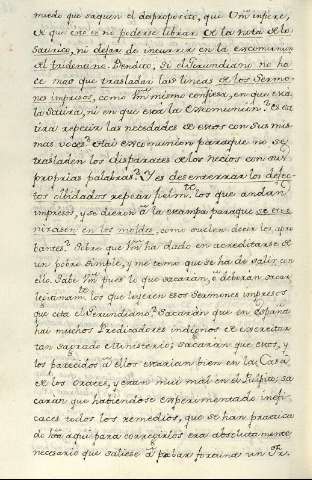 miedo que saquen el despropósito, que Vm infiere,
de que esto es no poderse librar de la nota de lo
satirico, ni dejar de incurrir en la excomunion
del tridentino. Bendito, si el Gerundiano no ha
ce mas que trasladar las lineas de los Sermo-
nes impresos, como Vm mismo confiesa, en que está
la Satira, ni en que está la Excomunion? Es sa
tira repetir las necedades de estos con sus mis-
mas voces? Hai excomunion paraque no se
trasladen los disparates de los necios con sus
proprias palabras? Y es desenterrar los defec-
tos olvidados repetir fielmte los que andan
impresos, y se dieron à la estampa paraque se eter
nizasen en los moldes, como suelen decir los apro
bantes? Sobre que Vm ha dado en acreditarse de
un pobre simple, y me temo que se ha de salir con
ello. Sabe Vm pues lo que sacarán, ò deberán sacar
legitimamte los que leyeren esos Sermones impresos
que cita el Gerundiano? Sacarán que en España
hai muchos Predicadores indignos de exercitar
tan sagrado Ministerio; sacarán que estos, y
los parecidos à ellos estarian bien en la Casa
de los Orates, y están mui mal en el Pulpito, sa
carán que habiendose experimentado inefi-
caces todos los remedios, que se han practica
do hta aqui para corregirlos era absolutamente
necesario que saliese à probar fortuna un Fr.